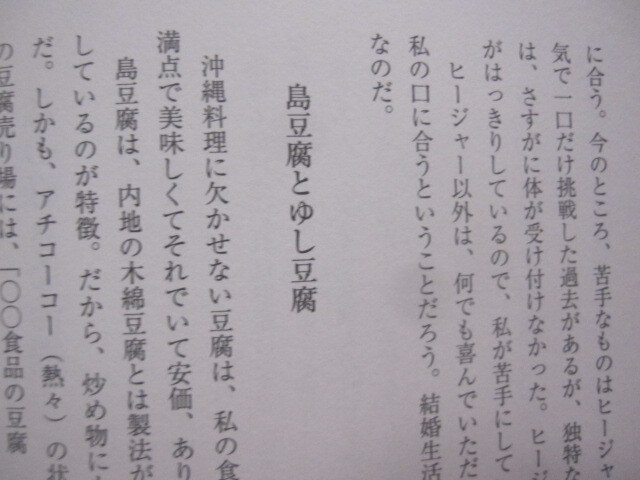 に合う。今のところ、苦手なものはヒージャ
気で一口だけ挑戦した過去があるが、独特な
は、さすがに体が受け付けなかった。ヒージ
がはっきりしているので、私が苦手にして
ヒージャー以外は、何でも喜んでいただ
私の口に合うということだろう。結婚生活
なのだ。
島豆腐とゆし豆腐
沖縄料理に欠かせない豆腐は、私の食
満点で美味しくてそれでいて安価、あり
島豆腐は、内地の木綿豆腐とは製法が
しているのが特徴。だから、炒め物に
だ。しかも、アチコーコー（熱々）の状
の豆腐売り場には、「〇〇食品の豆腐